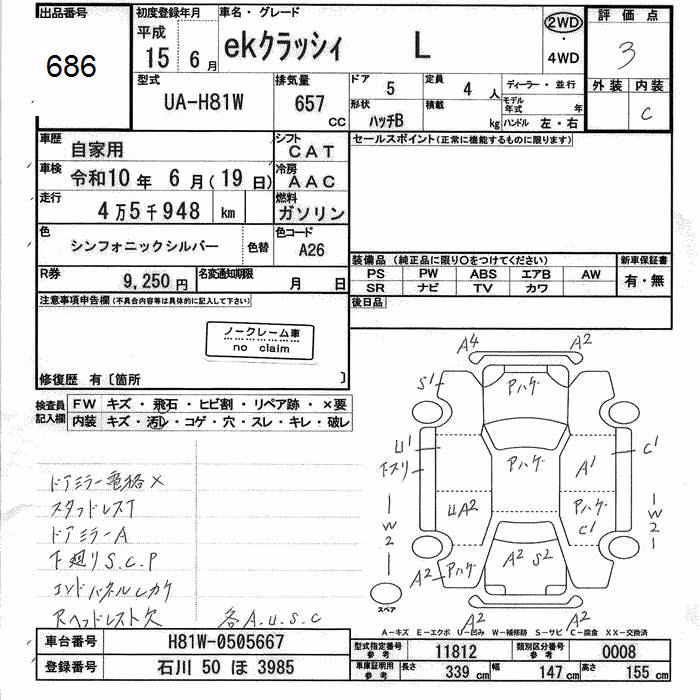 出品番号
686
初度登録年月
平成
15 6月
車名・グレード
ekクラッシィ L
2WD
・
4WD
評価点
3
外装 内装
C
型式
UA-H81W
排気量
657
CC
ドア
5
定員
4人
形状
ハッチB
積載
kg
ディーラー・並行
モデル年式 年
ハンドル 左・右
車歴
自家用
シフト
CAT
車検
令和10年 6月(19日)
冷房
AAC
走行
4万5千948 km
燃料
ガソリン
色
シンフォニックシルバー
色替
色コード
A26
R券
9,250円
名変通知期限
月 日
セールスポイント(正常に機能するものに限ります)
装備品(純正品に限り○をつけてください)
PS PW ABS エアB AW
SR ナビ TV カワ
新車保証書
有・無
後日品
注意事項申告欄(不具合内容等は具体的に記入して下さい)
ノークレーム車
no claim
修復歴 有〔箇所 〕
検査員
記入欄
FW キズ・飛石・ヒビ割・リペア跡・×要
内装 キズ・汚レ・コゲ・穴・スレ・キレ・破レ
ドアミラー電格×
スタッドレスT
ドアミラーA
下廻りS.C.P
エンドパネルヒカケ
Rヘッドレスト欠
各A.U.S.C
A4
A2
S1
アハゲ
U1
下スリ
アハゲ
A1
C1
UA2
アハゲ
C1
W2
W2
A2
アハゲ
A2 S2
A2
A2
A2
スペア
A-キズ E-エクボ U-凹み W-補修跡 S-サビ C-腐食 XX-交換済
車台番号
H81W-0505667
登録番号
石川 50 ほ 3985
型式指定番号
参考
11812
類別区分番号
参考
0008
車庫証明用
参考
長さ
339 cm
幅
147 cm
高さ
155 cm